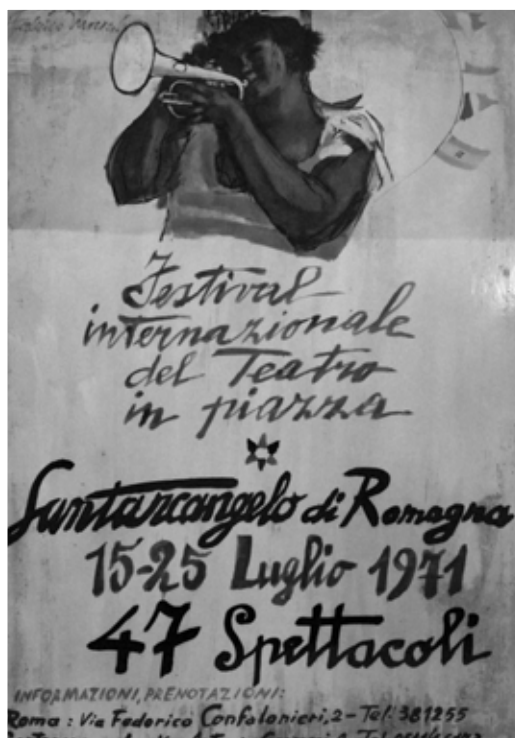 Festival
internazionale
del Teatro
in piazza
Santarcangelo di Romagna
15-25 Luglio 1971
47 Spettacoli
INFORMAZIONI, PRENOTAZIONI:
Roma: Via Federico Confalonieri, 2 - Tel. 381255